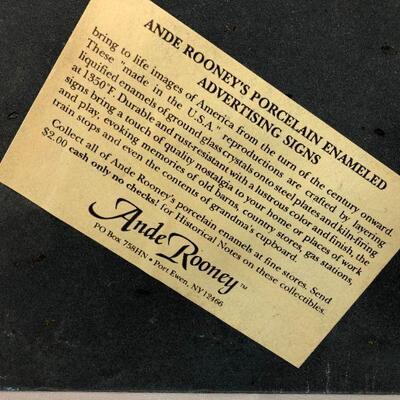 ANDE ROONEY'S PORCELAIN ENAMELED
ADVERTISING SIGNS
bring to life images of America from the turn of the century onward.
These "made in the U.S.A." reproductions are crafted by layering
liquified enamels of ground glass crystals onto steel plates and kiln-firing
at 1350°F. Durable and rust-resistant with a lustrous color and finish, the
signs bring a touch of quality nostalgia to your home or places of work
and play, evoking memories of old barns, country stores, gas stations,
train stops and even the contents of grandma's cupboard.
Collect all of Ande Rooney's porcelain enamels at fine stores. Send
$2.00 cash only no checks! for Historical Notes on these collectibles.
Ande Rooney™
PO Box 758HN • Port Ewen, NY 12466